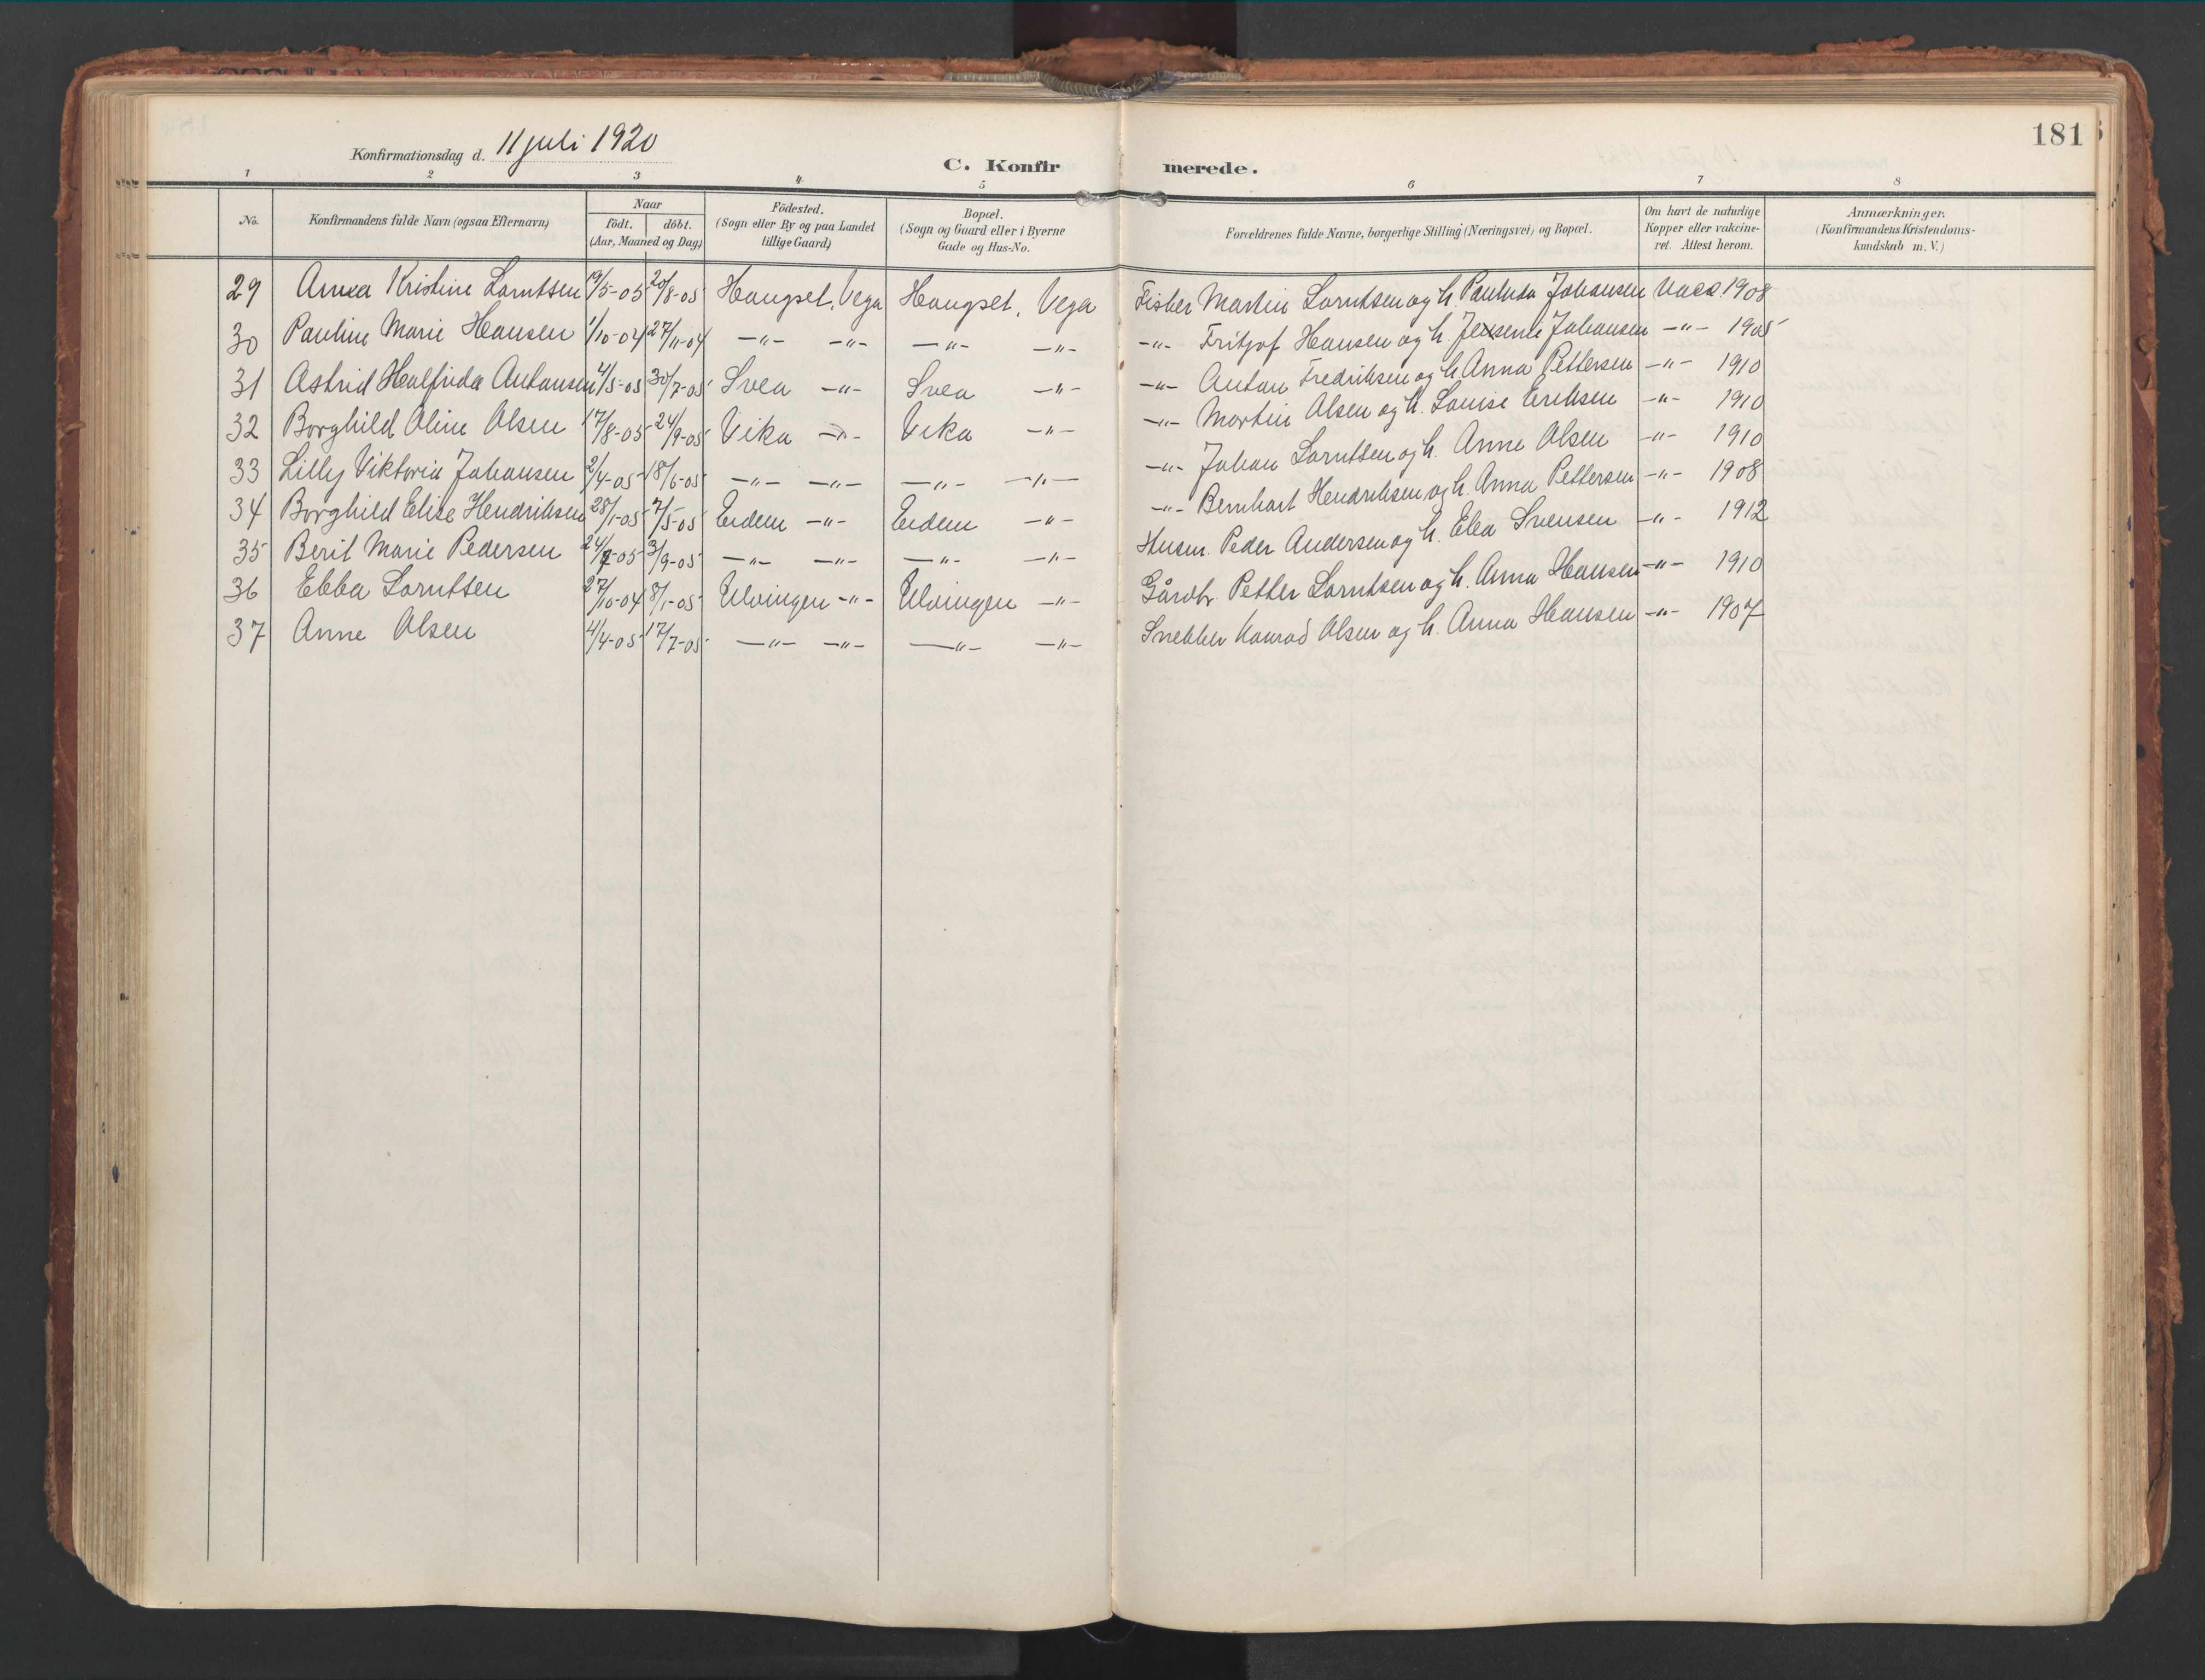 181
Konfirmationsdag d. 11 juli 1920
C. Konfirmerede.
1 2 3 4 5 6 7 8
No. | Konfirmandens fulde Navn (ogsaa Efternavn) | Naar födt. döbt. (Aar, Maaned og Dag) | Födested. (Sogn eller By og paa Landet tillige Gaard) | Bopæl. (Sogn og Gaard eller i Byerne Gade og Hus-No. | Forældrenes fulde Navne, borgerlige Stilling (Næringsvei) og Bopæl. | Om havt de naturlige Kopper eller vakcineret. Attest herom. | Anmærkninger. (Konfirmandens Kristendomskundskab m. V.)
29 Anna Kristine Lorntsen 19/5-05 20/8-05 Haugset, Vega Haugset, Vega Fisker Martin Lorntsen og h. Paulida Johansen vacc. 1908
30 Pauline Marie Hansen 1/10-04 27/11-04 -"- -"- -"- -"- -"- Fritjof Hansen og h. Jensenie Johansen -"- 1905
31 Astrid Halfrida Antonsen 4/5-05 30/7-05 Svea -"- Svea -"- -"- Anton Fredriksen og h. Anna Pettersen -"- 1910
32 Borghild Oline Olsen 17/8-05 24/9-05 Vika -"- Vika -"- -"- Martin Olsen og h. Louise Eriksen -"- 1910
33 Lilly Viktoria Johansen 2/4-05 18/6-05 -"- -"- -"- -"- -"- Johan Lorntsen og h. Anne Olsen -"- 1910
34 Borghild Elise Hendriksen 28/1-05 7/5-05 Eidem -"- Eidem -"- -"- Bernhart Hendriksen og h. Anna Pettersen -"- 1908
35 Berit Marie Pedersen 24/7-05 3/9-05 -"- -"- -"- -"- Husm. Peder Andersen og h. Elea Svensen -"- 1912
36 Ebba Lorntsen 27/10-04 8/1-05 Ulvingen -"- Ulvingen -"- Gårdbr. Petter Lorntsen og h. Anna Hansen -"- 1910
37 Anne Olsen 4/4-05 17/7-05 -"- -"- -"- -"- Snekker Konrad Olsen og h. Anna Hansen -"- 1907